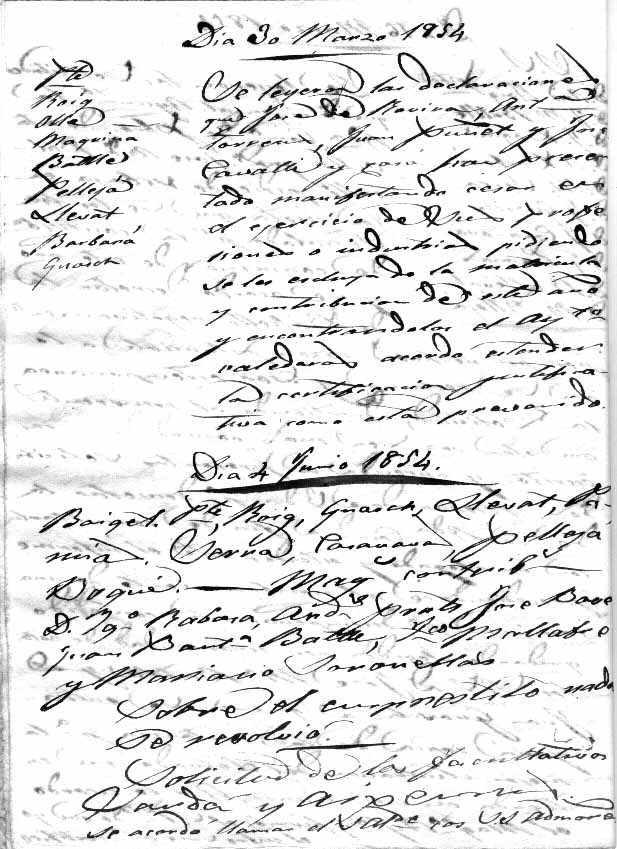 Dia 30 Marzo 1854
Pte
Roig
Olle
Maquina
Batlle
Pellejá
Llevat
Barbará
Guasch
Se leyeron las declaraciones
que José de Rovira, Anto
Torrens, Juan Punet y Jn
Cavallé y han presen
tado manifestando cesar en
el ejercicio de sus profe
siones o industrias pidiendo
se les escluya de la matricula
y contribucion de este año
y encontrandolas el Aynto
valederas acordó estender
la certificacion justifica
tiva como está prevenido.
Dia 4 Junio 1854.
Baiget. Pte, Roig, Guasch, Llevat,
Serra, Casanova, Pellejá
Duqué. — May contribs
D. Igo Rabasa, Andrs Prats, Jose Bove
Juan Bauta Batlle, Fco
y Mariano
Sobre el emprestito nada
se resolvió.
Solicitud de los facultativos
y
Se acordó llamar el con los